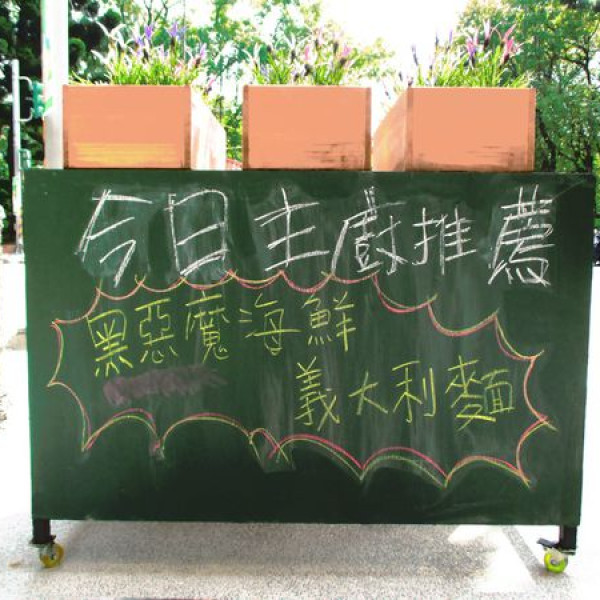 今日主廚推薦
黑惡魔海鮮
義大利麵